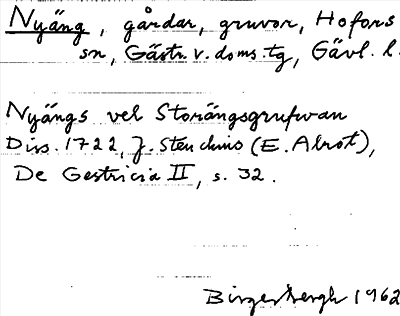 Nyäng, gårdar, gruvor, Hofors
sn, Gästr. v. doms.tg, Gävl. l.
Nyängs vel Storängsgrufvan
Diss. 1722, J. Stenchius (E. Alrot),
De Gestricia II, s. 32.
Birger Bergh 1962